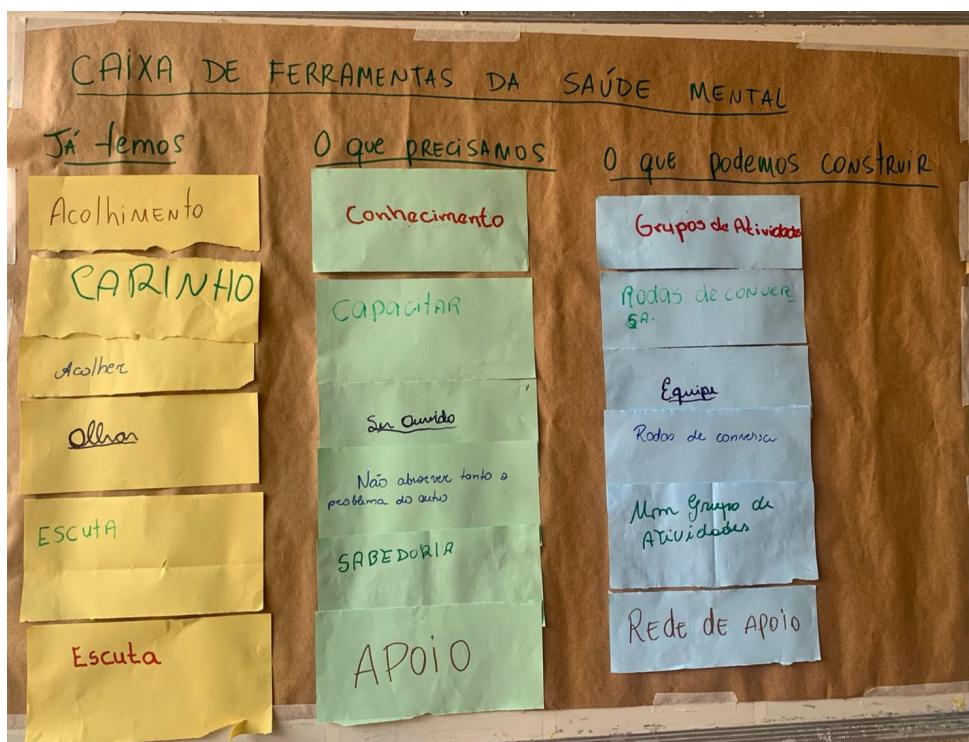 CAIXA DE FERRAMENTAS DA SAÚDE MENTAL
Já temos
Acolhimento
CARINHO
Acolher
Olhar
ESCUTA
Escuta
O que PRECISAMOS
Conhecimento
CAPACITAR
Ser Ouvido
Não absorver tanto o
problema do outro
SABEDORIA
APOIO
O que podemos construir
Grupos de Atividades
Rodas de conver
SA.
Equipe
Rodas de conversa
Mom Grupo de
Atividades
REDE DE APOIO